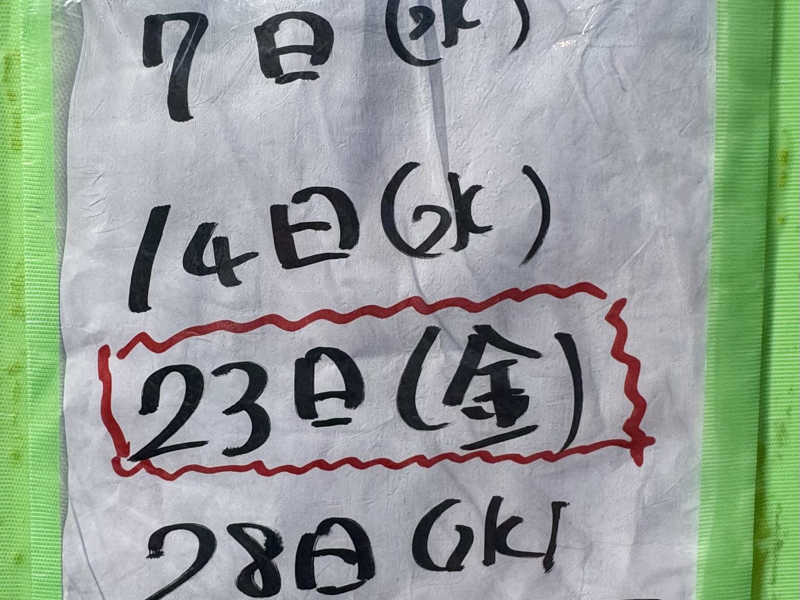 7日(水)
14日(水)
23日(金)
28日(水)